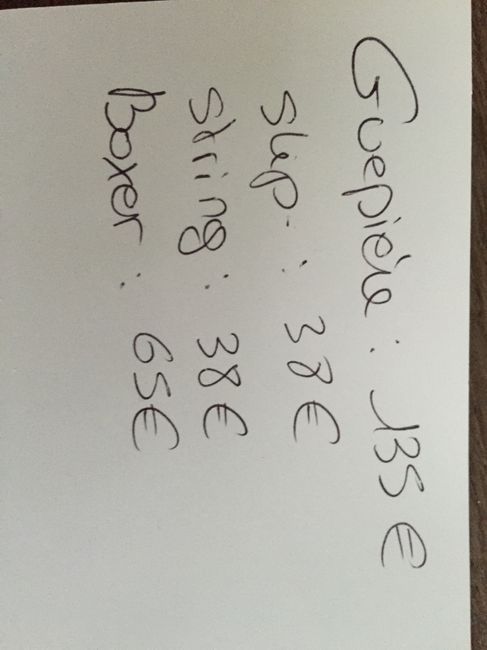 Guepière : 135 €
Slip : 38 €
String : 38 €
Boxer : 65 €